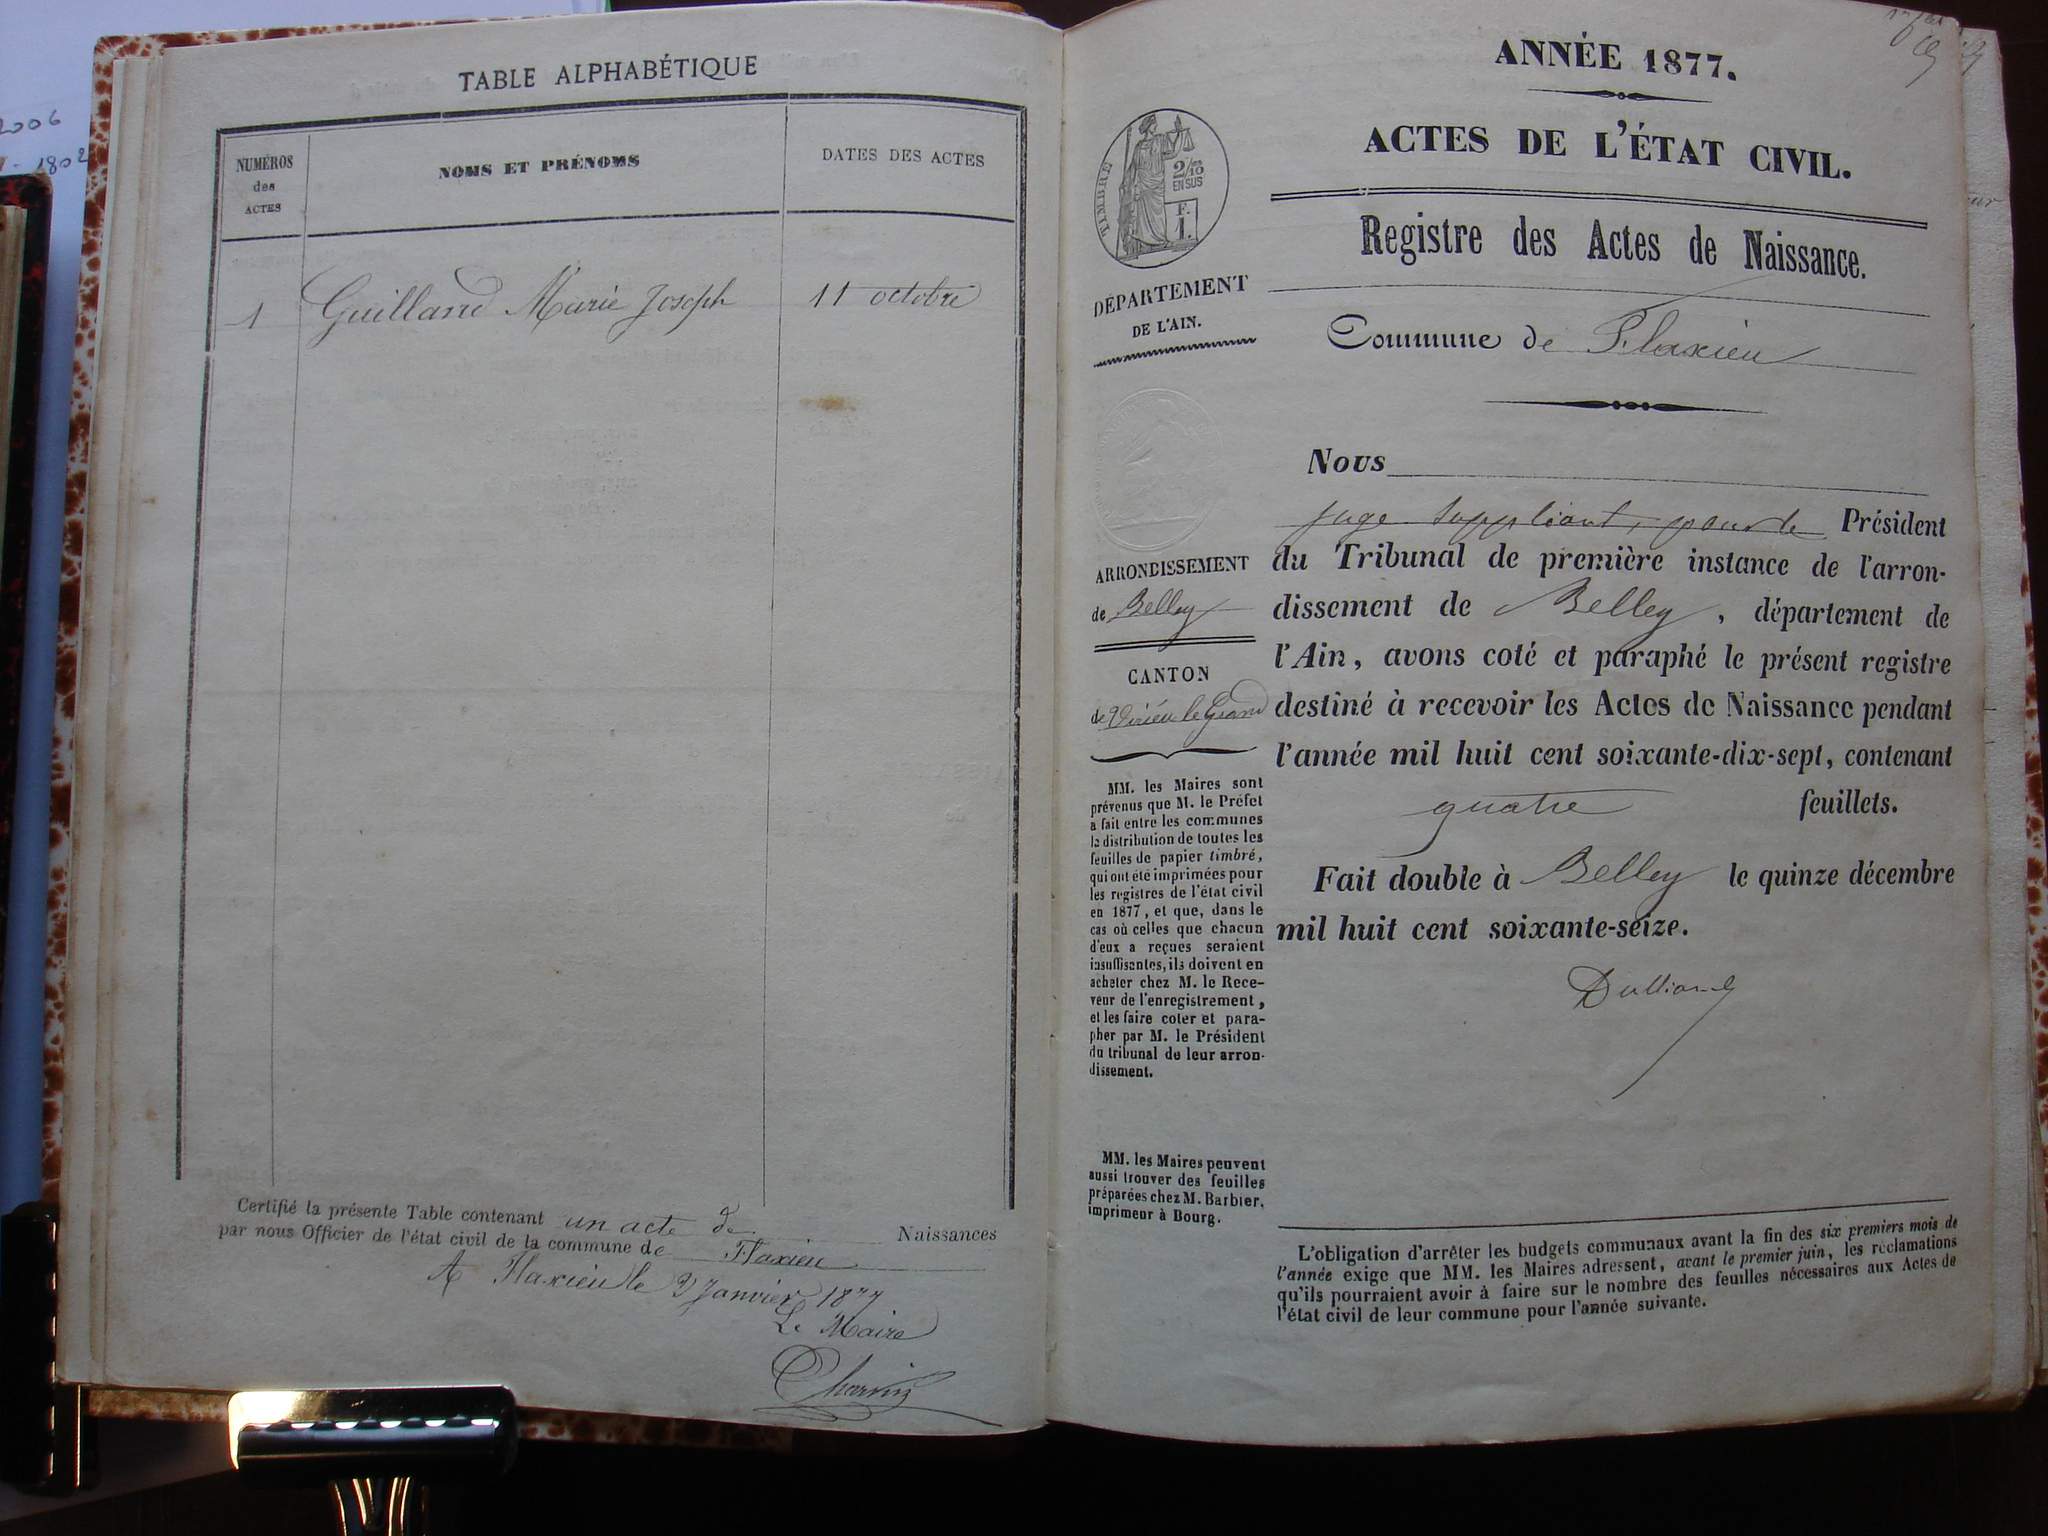 2006
1802
TABLE ALPHABÉTIQUE
NUMÉROS
des
ACTES
NOMS ET PRÉNOMS
DATES DES ACTES
1 Guilland Marie Joseph 11 octobre
Certifié la présente Table contenant un acte de Naissances
par nous Officier de l'état civil de la commune de Flaxieu
A Flaxieu le 3 Janvier 1877
Le Maire
Charvin
ANNÉE 1877.
ACTES DE L'ÉTAT CIVIL.
Registre des Actes de Naissance.
Commune de Flaxieu
TIMBRE
2/10
EN SUS
F.
1.
DÉPARTEMENT
DE L'AIN.
ARRONDISSEMENT
de Belley
CANTON
de Virieu le Grand
MM. les Maires sont
prévenus que M. le Préfet
a fait entre les communes
la distribution de toutes les
feuilles de papier timbré,
qui ont été imprimées pour
les registres de l'état civil
en 1877, et que, dans le
cas où celles que chacun
d'eux a reçues seraient
insuffisantes, ils doivent en
acheter chez M. le Rece-
veur de l'enregistrement,
et les faire coter et para-
pher par M. le Président
du tribunal de leur arron-
dissement.
MM. les Maires peuvent
aussi trouver des feuilles
préparées chez M. Barbier,
imprimeur à Bourg.
Nous
juge suppléant, pour le Président
du Tribunal de première instance de l'arron-
dissement de Belley, département de
l'Ain, avons coté et paraphé le présent registre
destiné à recevoir les Actes de Naissance pendant
l'année mil huit cent soixante-dix-sept, contenant
quatre feuillets.
Fait double à Belley le quinze décembre
mil huit cent soixante-seize.
L'obligation d'arrêter les budgets communaux avant la fin des six premiers mois de
l'année exige que MM. les Maires adressent, avant le premier juin, les réclamations
qu'ils pourraient avoir à faire sur le nombre des feuilles nécessaires aux Actes de
l'état civil de leur commune pour l'année suivante.